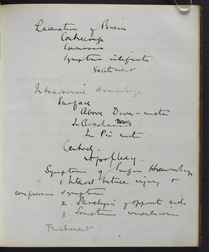 Laceration of Brain
Contrecoup
Symptoms
Treatment
Intracranial Hemorrhage
Surface
Above Dura-mater
In Arachnoid
In Pia mater
Central
Apoplexy
Symptoms of Surface Haemorrhage
1. Interval between injury &
compression symptoms
2. Paralysis of opposite side
3. Sometimes convulsions
Treatment